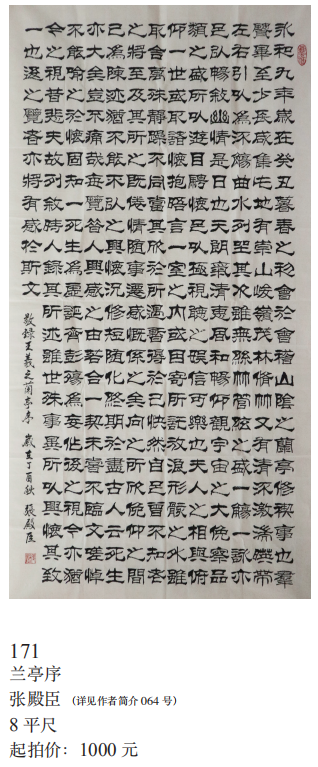 永和九年歲在癸丑暮春之初會於會稽山陰之蘭亭修禊事也羣
賢畢至少長咸集此地有崇山峻嶺茂林脩竹又有清流激湍暎帶
左右引以為流觴曲水列坐其次雖無絲竹管弦之盛一觴一詠亦
足以暢敘幽情是日也天朗氣清惠風和暢仰觀宇宙之大俛察品
類之盛所以遊目騁懷足以極視聽之娛信可樂也夫人之相與俯
仰一世或取諸懷抱晤言一室之內或因寄所託放浪形骸之外雖
取舍萬殊靜躁不同當其欣於所遇暫得於己快然自足曾不知老
之將至及其所之既倦情隨事遷感慨係之矣向之所欣俛仰之間
已為陳迹猶不能不以之興懷況修短隨化終期於盡古人云死生
亦大矣豈不痛哉每覽昔人興感之由若合一契未嘗不臨文嗟悼
不能喻之於懷固知一死生為虛誕齊彭殤為妄作後之視今亦猶
今之視昔悲夫故列敘時人錄其所述雖世殊事異所以興懷其致
一也後之覽者亦將有感於斯文
敬錄王羲之蘭亭序 歲在丁酉秋 張殿臣
171
兰亭序
张殿臣 （详见作者简介 064 号）
8 平尺
起拍价：1000 元